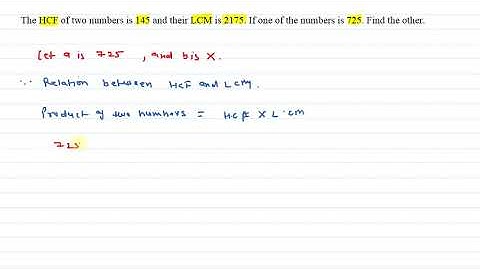 The HCF of two numbers is 145 and their LCM is 2175. If one of the numbers is 725. Find the other.
Let a is 725 , and b is X.
∵ Relation between HCF and LCM.
Product of two numbers = HCF X L.CM
725